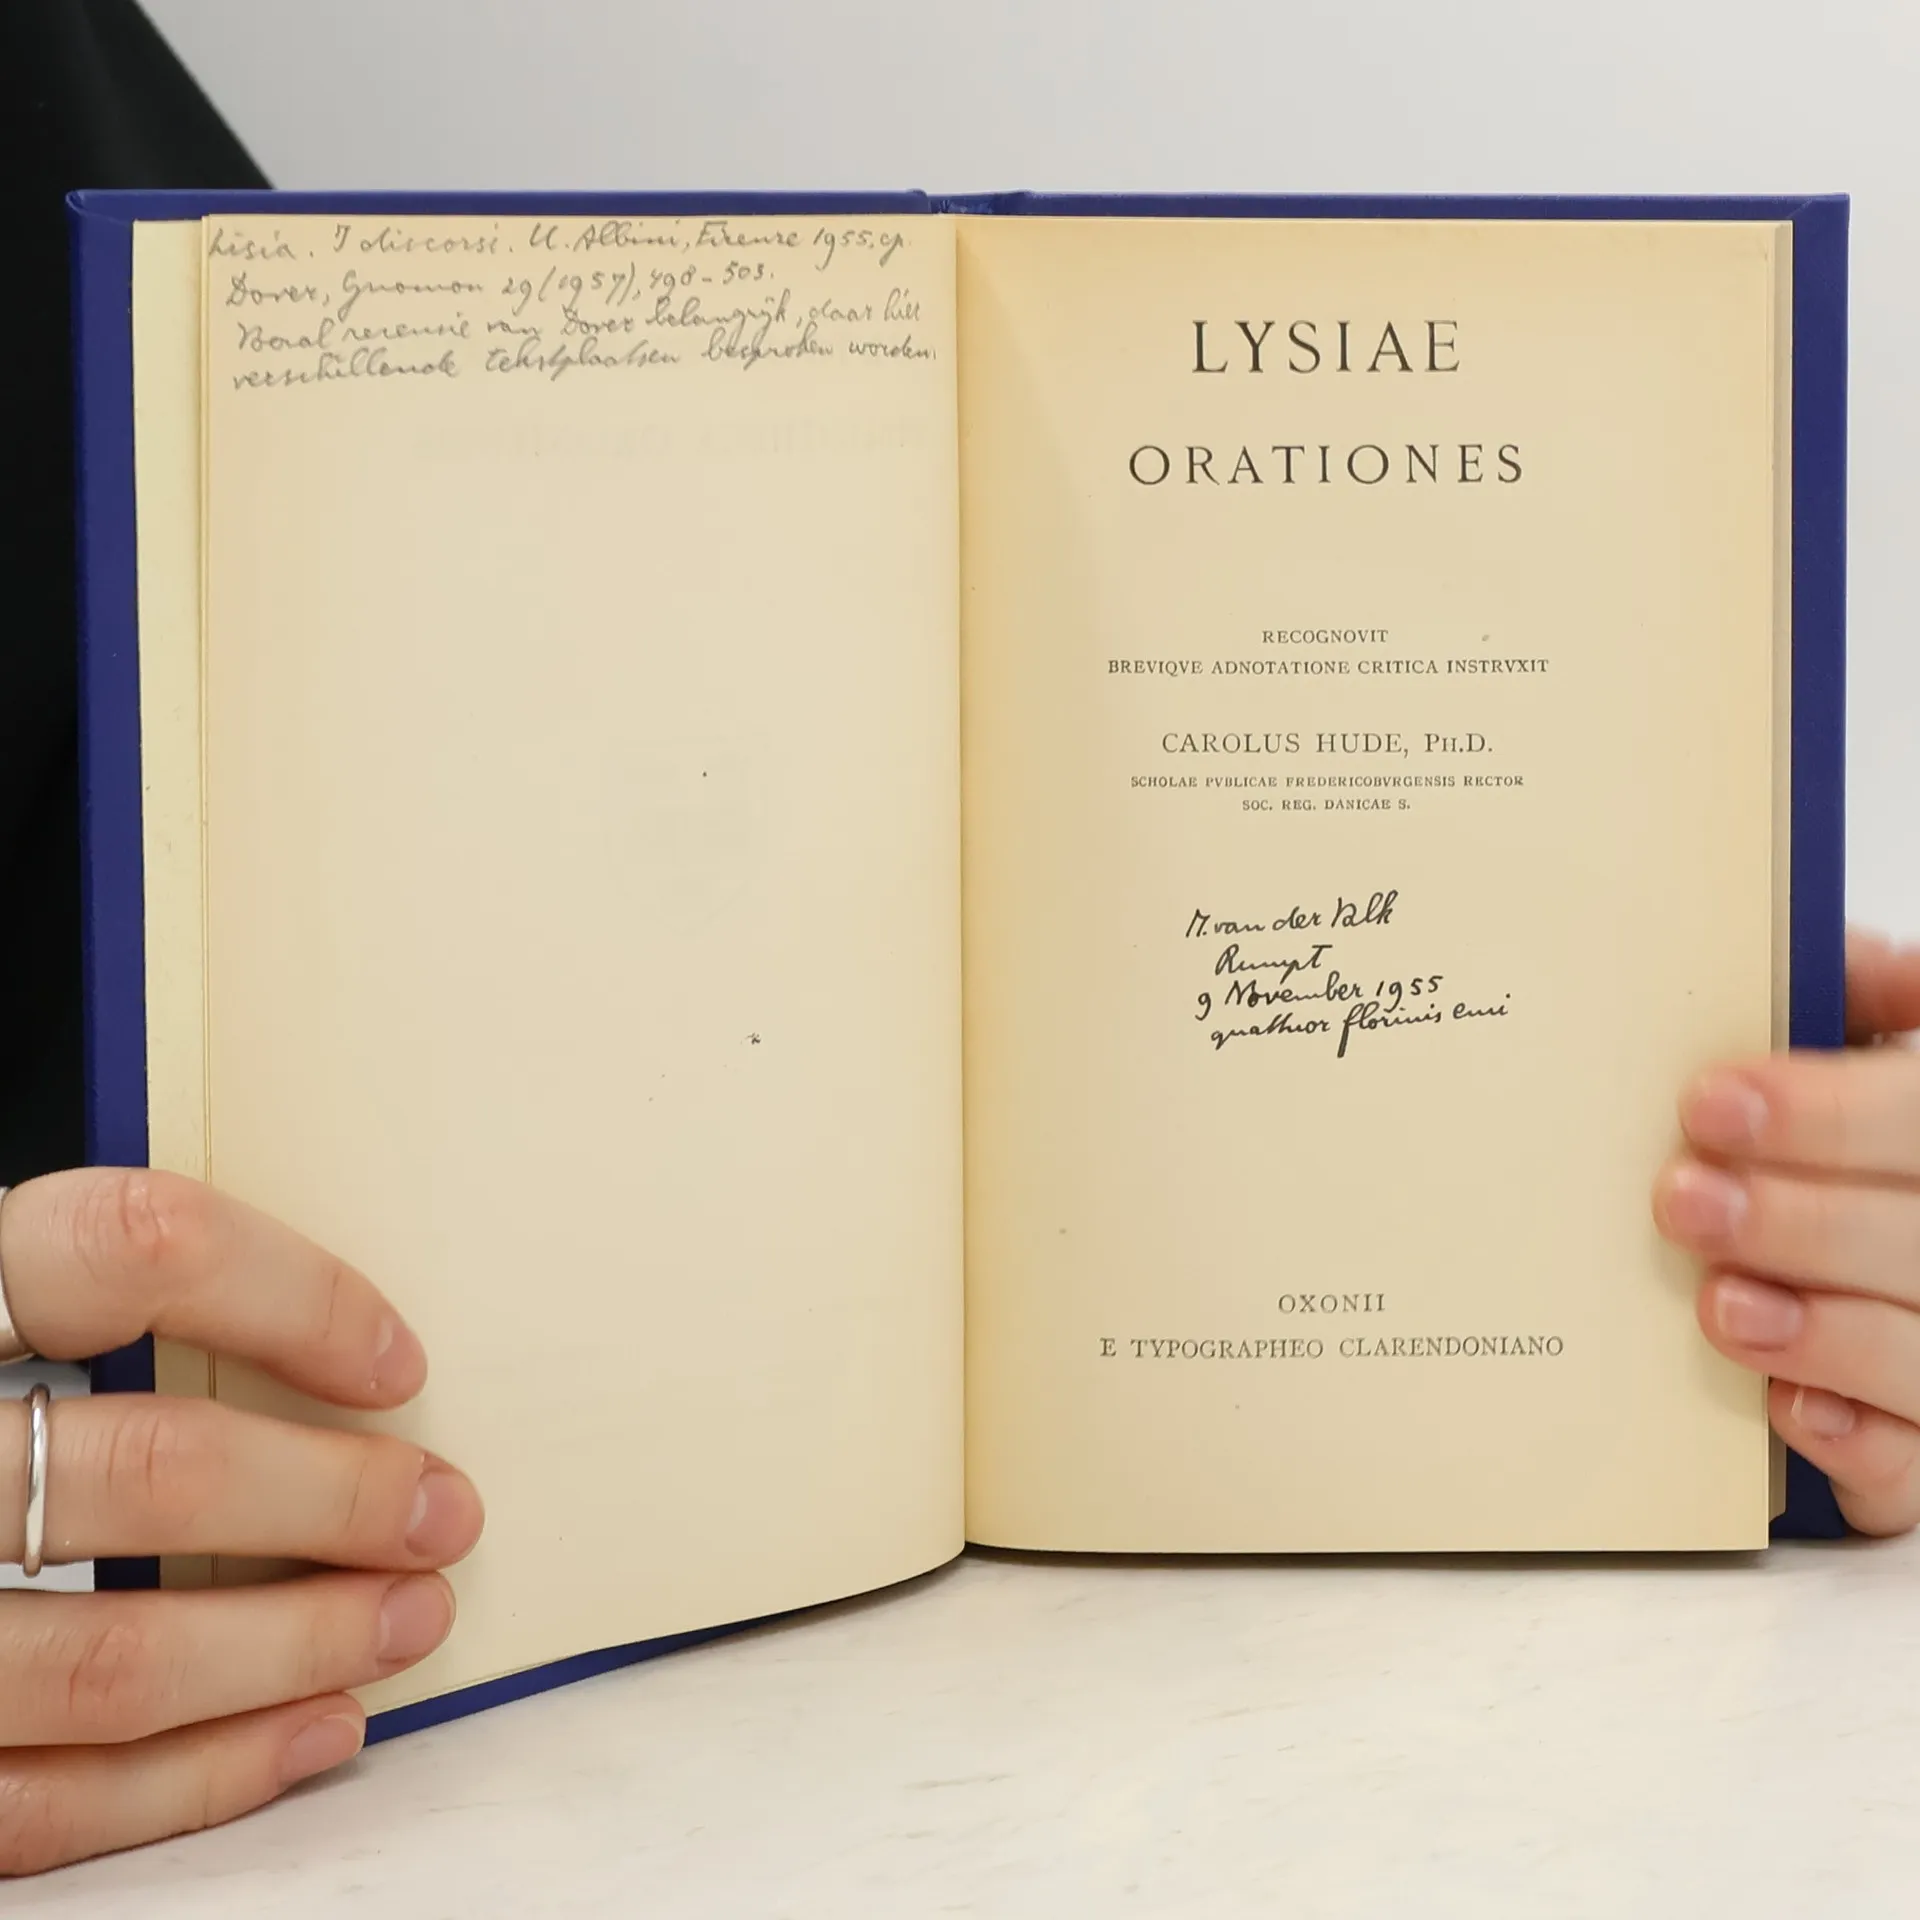 Lisia. I discorsi. U. Albini, Firenze 1955, cp.
Dover, Gnomon 29 (1957), 498-503.
Vooral recensie van Dover belangrijk, daar hier
verschillende tekstplaatsen besproken worden.
LYSIAE
ORATIONES
RECOGNOVIT
BREVIQVE ADNOTATIONE CRITICA INSTRVXIT
CAROLUS HUDE, PH.D.
SCHOLAE PVBLICAE FREDERICOBVRGENSIS RECTOR
SOC. REG. DANICAE S.
M. van der Valk
Rumpt
9 November 1955
quattuor florinis emi
OXONII
E TYPOGRAPHEO CLARENDONIANO